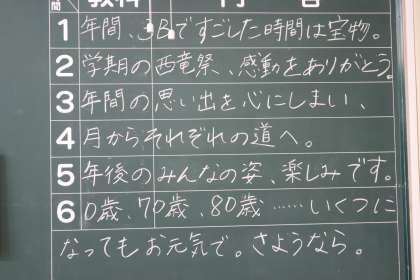 間 教科 内容
1 年間、3Bですごした時間は宝物。
2 学期の西竜祭、感動をありがとう。
3 年間の思い出を心にしまい、
4 月からそれぞれの道へ。
5 年後のみんなの姿、楽しみです。
6 0歳、70歳、80歳……いくつに
なってもお元気で。さようなら。